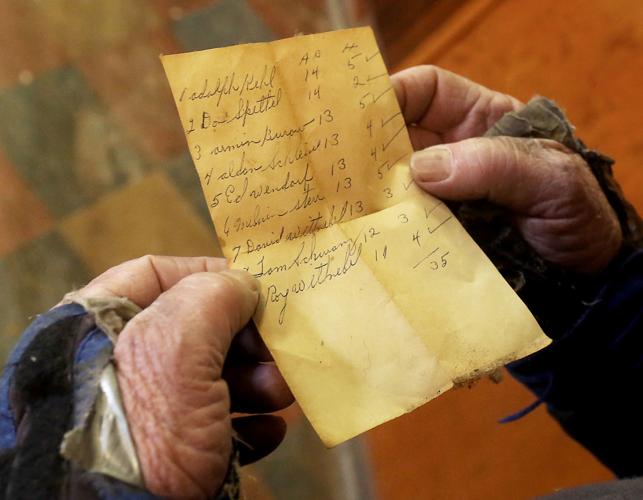 AB H
1 adolph Kehl 14 5 ✓
2 Don Spettel 14 2 ✓
3 armin Burow 13 5 ✓
4 aldon 13 4 ✓
5 Ed Wendorf 13 4 ✓
6 Melvin 13 5 ✓
7 David Wittnebel 13 3 ✓
Tom Schwanz 12 3 ✓
Roy Wittnebl 11 4 ✓
35